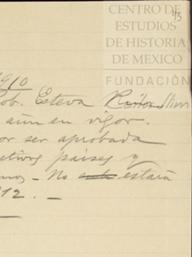 CENTRO DE
ESTUDIOS
DE HISTORIA
DE MEXICO
FUNDACIÓN
1910
ob. Esteva
aún en vigor.
or ser aprobada
países y
No estará
912. —